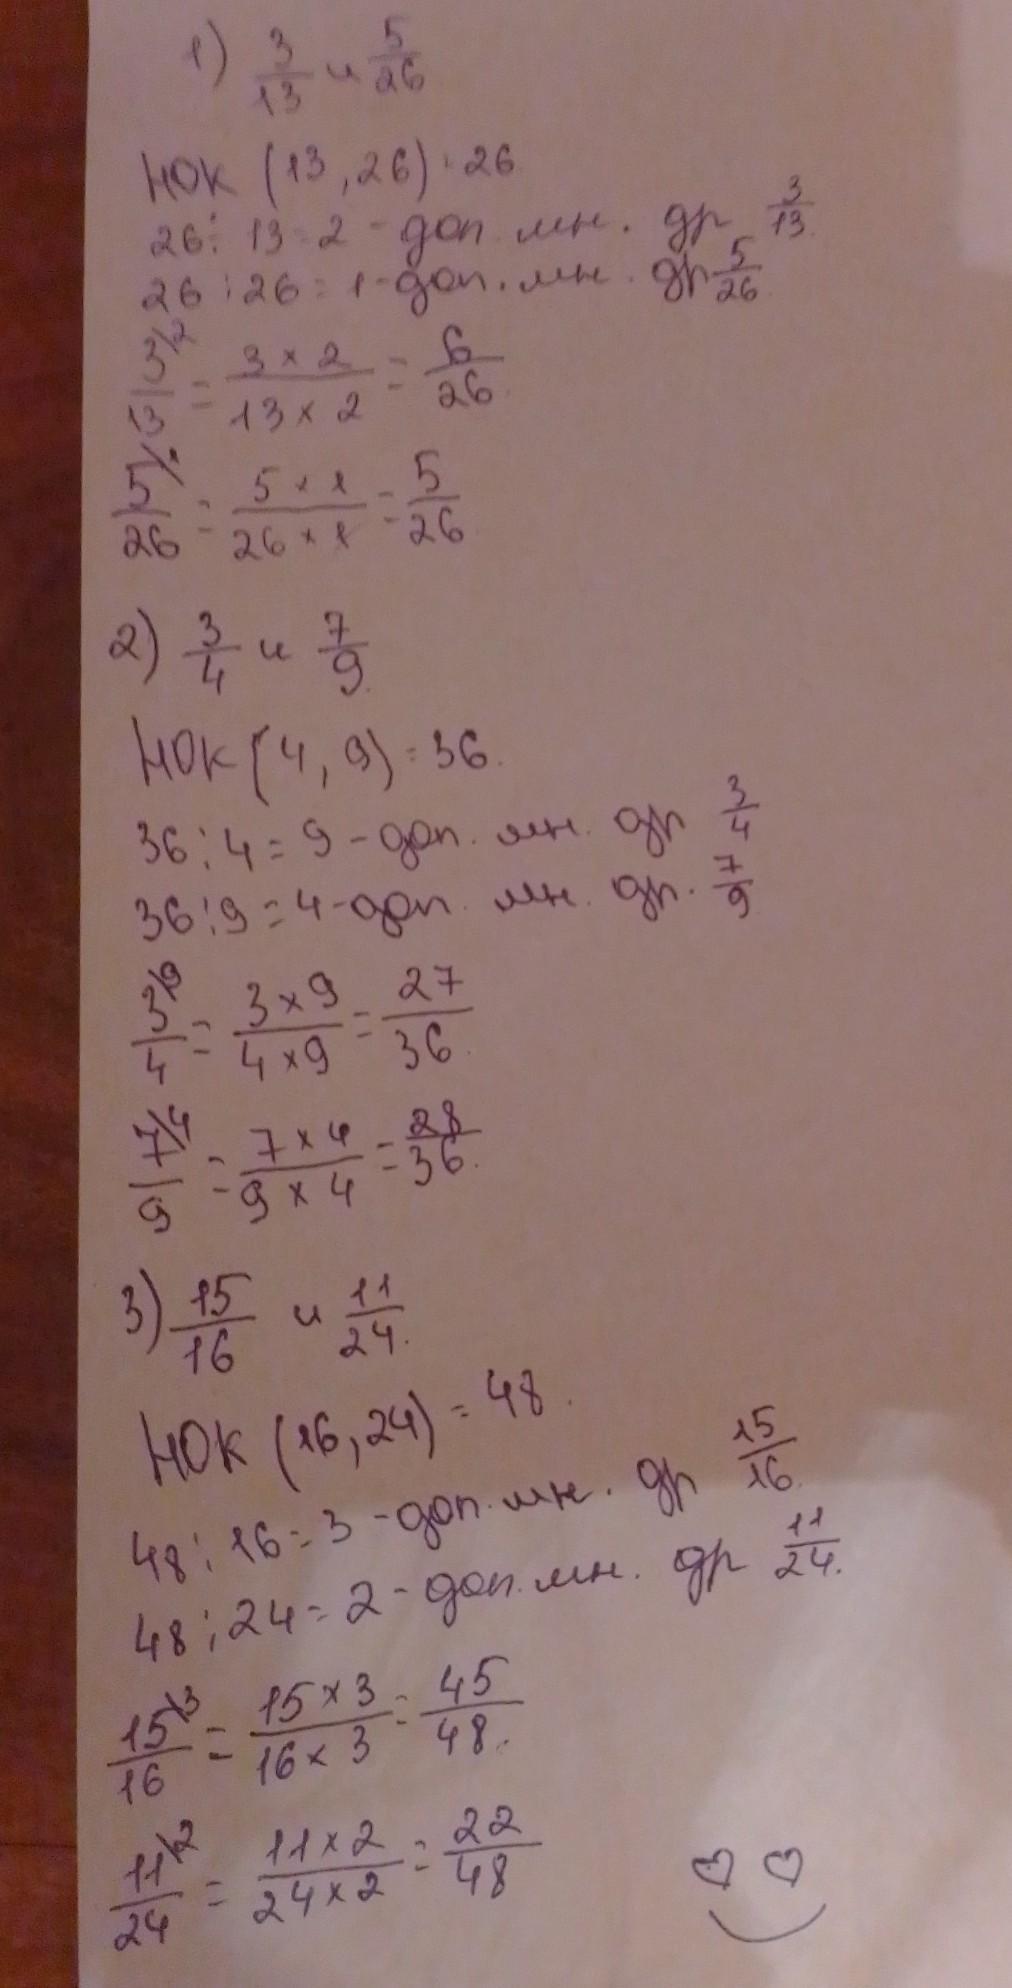 1) 3/13 и 5/26
НОК (13, 26) = 26
26 : 13 = 2 - доп. мн. др 3/13.
26 : 26 = 1 - доп. мн. др 5/26
3\2/13 = 3 × 2/13 × 2 = 6/26.
5\1/26 = 5 × 1/26 × 1 = 5/26
2) 3/4 и 7/9.
НОК (4, 9) = 36.
36 : 4 = 9 - доп. мн. др 3/4
36 : 9 = 4 - доп. мн. др. 7/9
3\9/4 = 3 × 9/4 × 9 = 27/36.
7\4/9 = 7 × 4/9 × 4 = 28/36.
3) 15/16 и 11/24.
НОК (16, 24) = 48.
48 : 16 = 3 - доп. мн. др 15/16.
48 : 24 = 2 - доп. мн. др 11/24.
15\3/16 = 15 × 3/16 × 3 = 45/48.
11\2/24 = 11 × 2/24 × 2 = 22/48